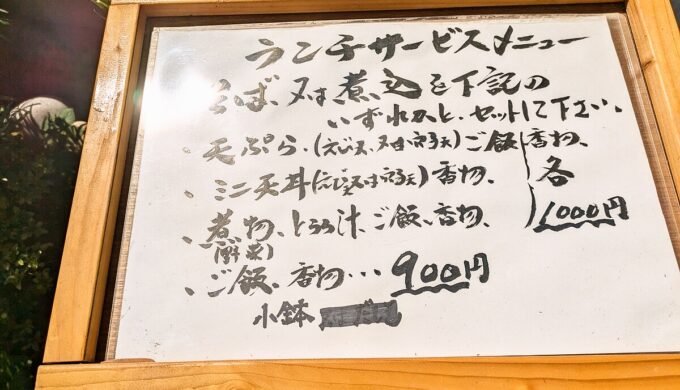 ランチサービスメニュー
そば、又は煮込を下記の
いずれかと、セットして下さい。
・天ぷら、(えび天、又は穴子天)ご飯、香物、
・ミニ天丼(えび天又は穴子天)香物、
各
1000円
・煮物、とろろ汁、ご飯、香物、
(野菜)
・ご飯、香物・・・900円
小鉢